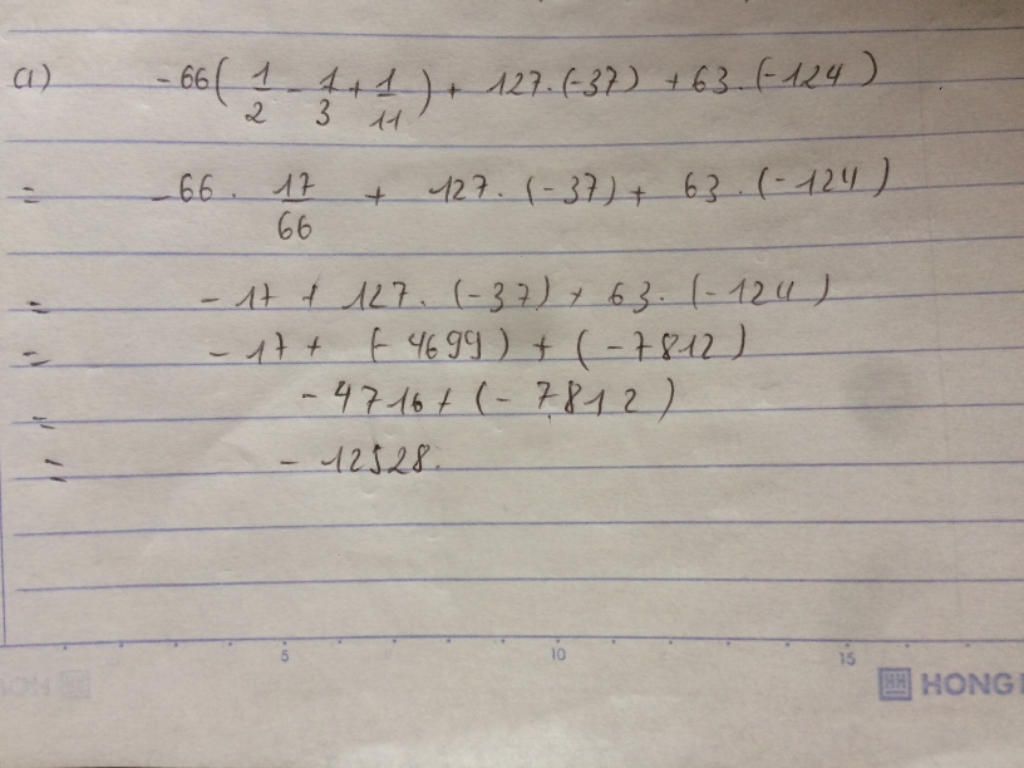 a) -66(1/2 - 1/3 + 1/11) + 127.(-37) + 63.(-124)
= -66 . 17/66 + 127.(-37) + 63.(-124)
= -17 + 127.(-37) + 63.(-124)
= -17 + (-4699) + (-7812)
= -4716 + (-7812)
= -12528.
5 10 15
HONG